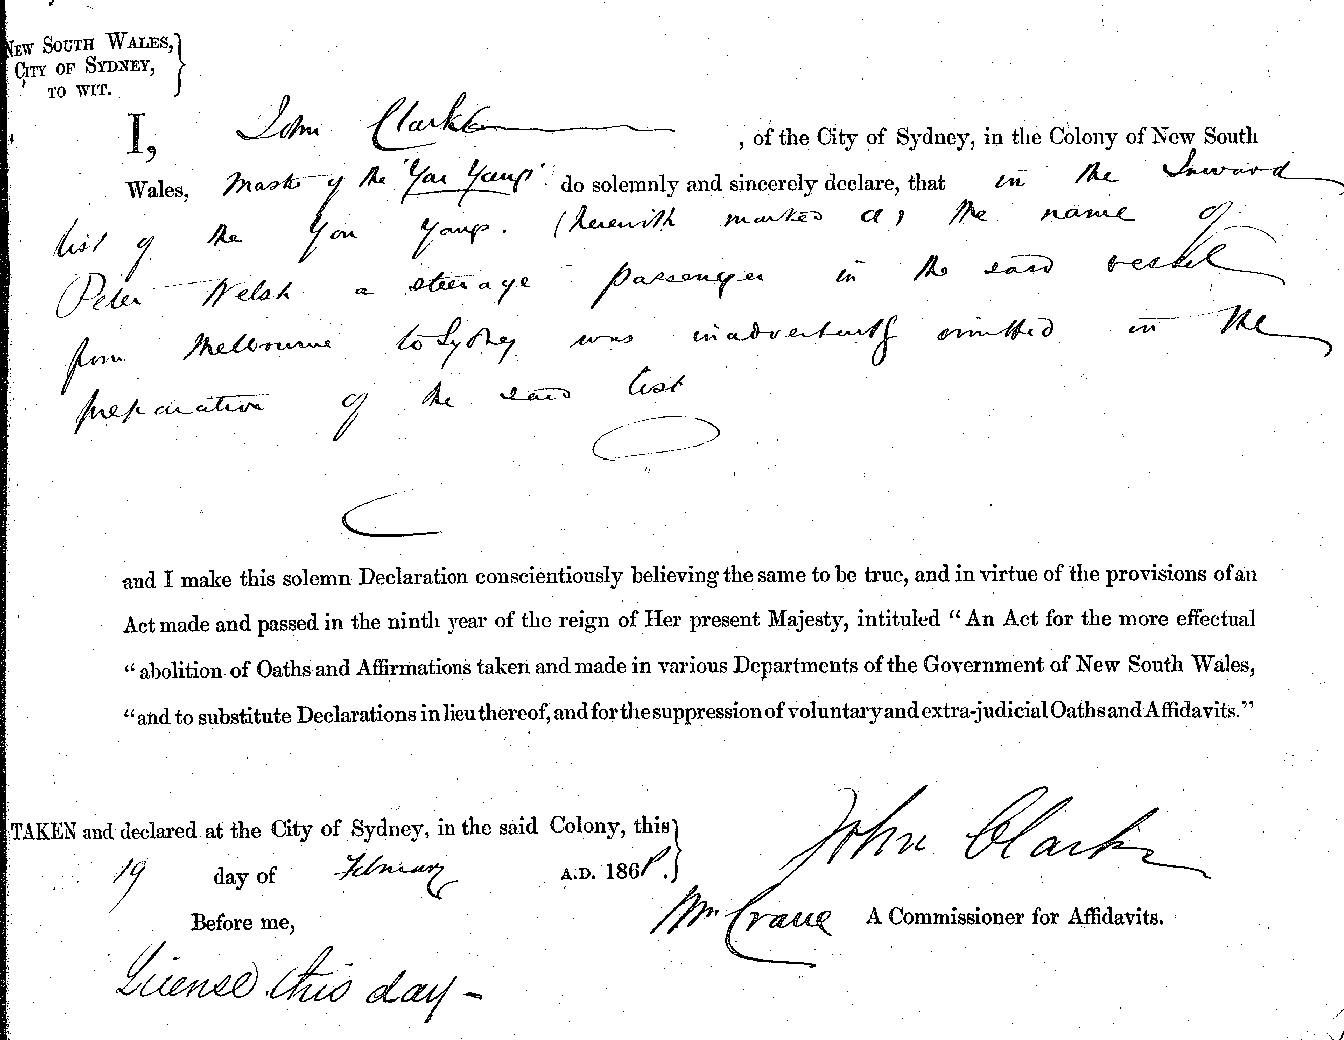 NEW SOUTH WALES,
CITY OF SYDNEY,
TO WIT.
I, John Clark , of the City of Sydney, in the Colony of New South
Wales, Master of the "You Yangs" do solemnly and sincerely declare, that in the Inward
list of the You Yangs. (herewith marked A) the name of
Peter Welsh a steerage passenger in the said vessel
from Melbourne to Sydney was inadvertently omitted in the
preparation of the said list
and I make this solemn Declaration conscientiously believing the same to be true, and in virtue of the provisions of an
Act made and passed in the ninth year of the reign of Her present Majesty, intituled "An Act for the more effectual
"abolition of Oaths and Affirmations taken and made in various Departments of the Government of New South Wales,
"and to substitute Declarations in lieu thereof, and for the suppression of voluntary and extra-judicial Oaths and Affidavits."
TAKEN and declared at the City of Sydney, in the said Colony, this
19 day of February A.D. 1868.
John Clark
Before me,
Wm Crane A Commissioner for Affidavits.
License this day -